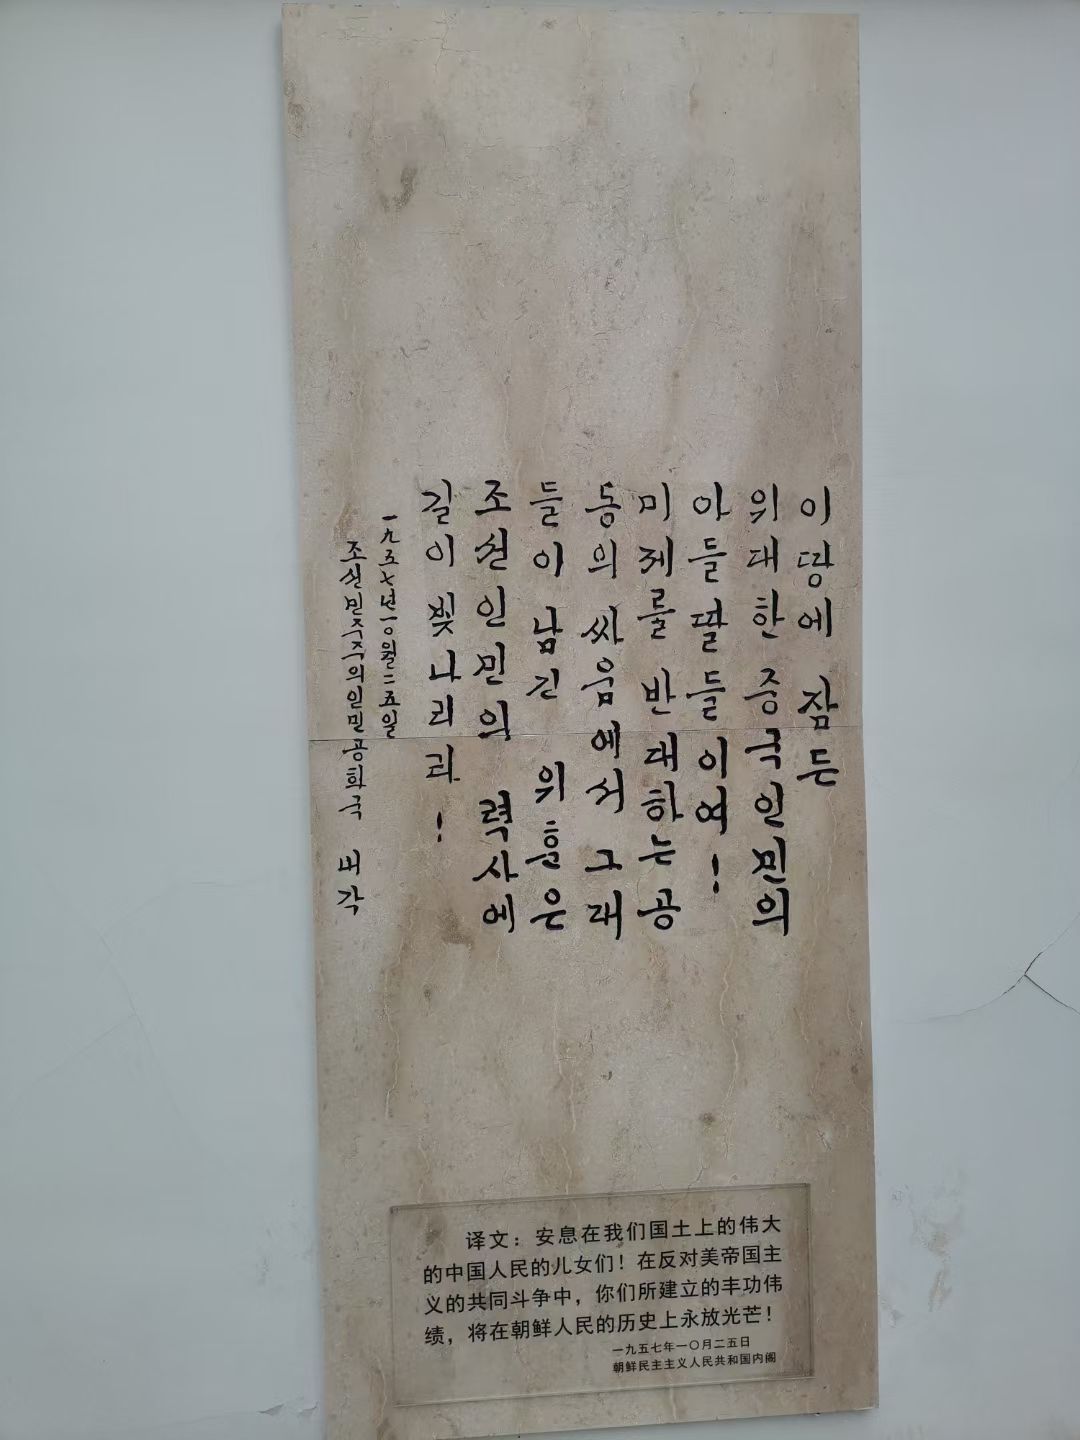 이 땅에 잠든
위대한 중국인민의
아들딸들이여!
미제를 반대하는 공
동의 싸움에서 그대
들이 남긴 위훈은
조선인민의 력사에
길이 빛나리라!
一九五七년一〇월二五일
조선민주주의인민공화국 내각
译文：安息在我们国土上的伟大
的中国人民的儿女们！在反对美帝国主
义的共同斗争中，你们所建立的丰功伟
绩，将在朝鲜人民的历史上永放光芒！
一九五七年一〇月二五日
朝鲜民主主义人民共和国内阁